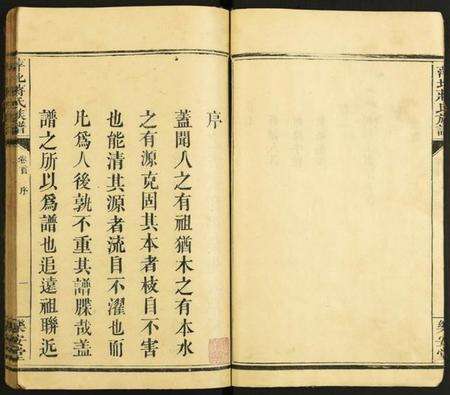 序
蓋聞人之有祖猶木之有本水
之有源克固其本者枝自不害
也能清其源者流自不濯也而
凡爲人後孰不重其譜牒哉盖
譜之所以爲譜也追遠祖聯近
萍北蔣氏族譜
卷首
序
一
樂安堂